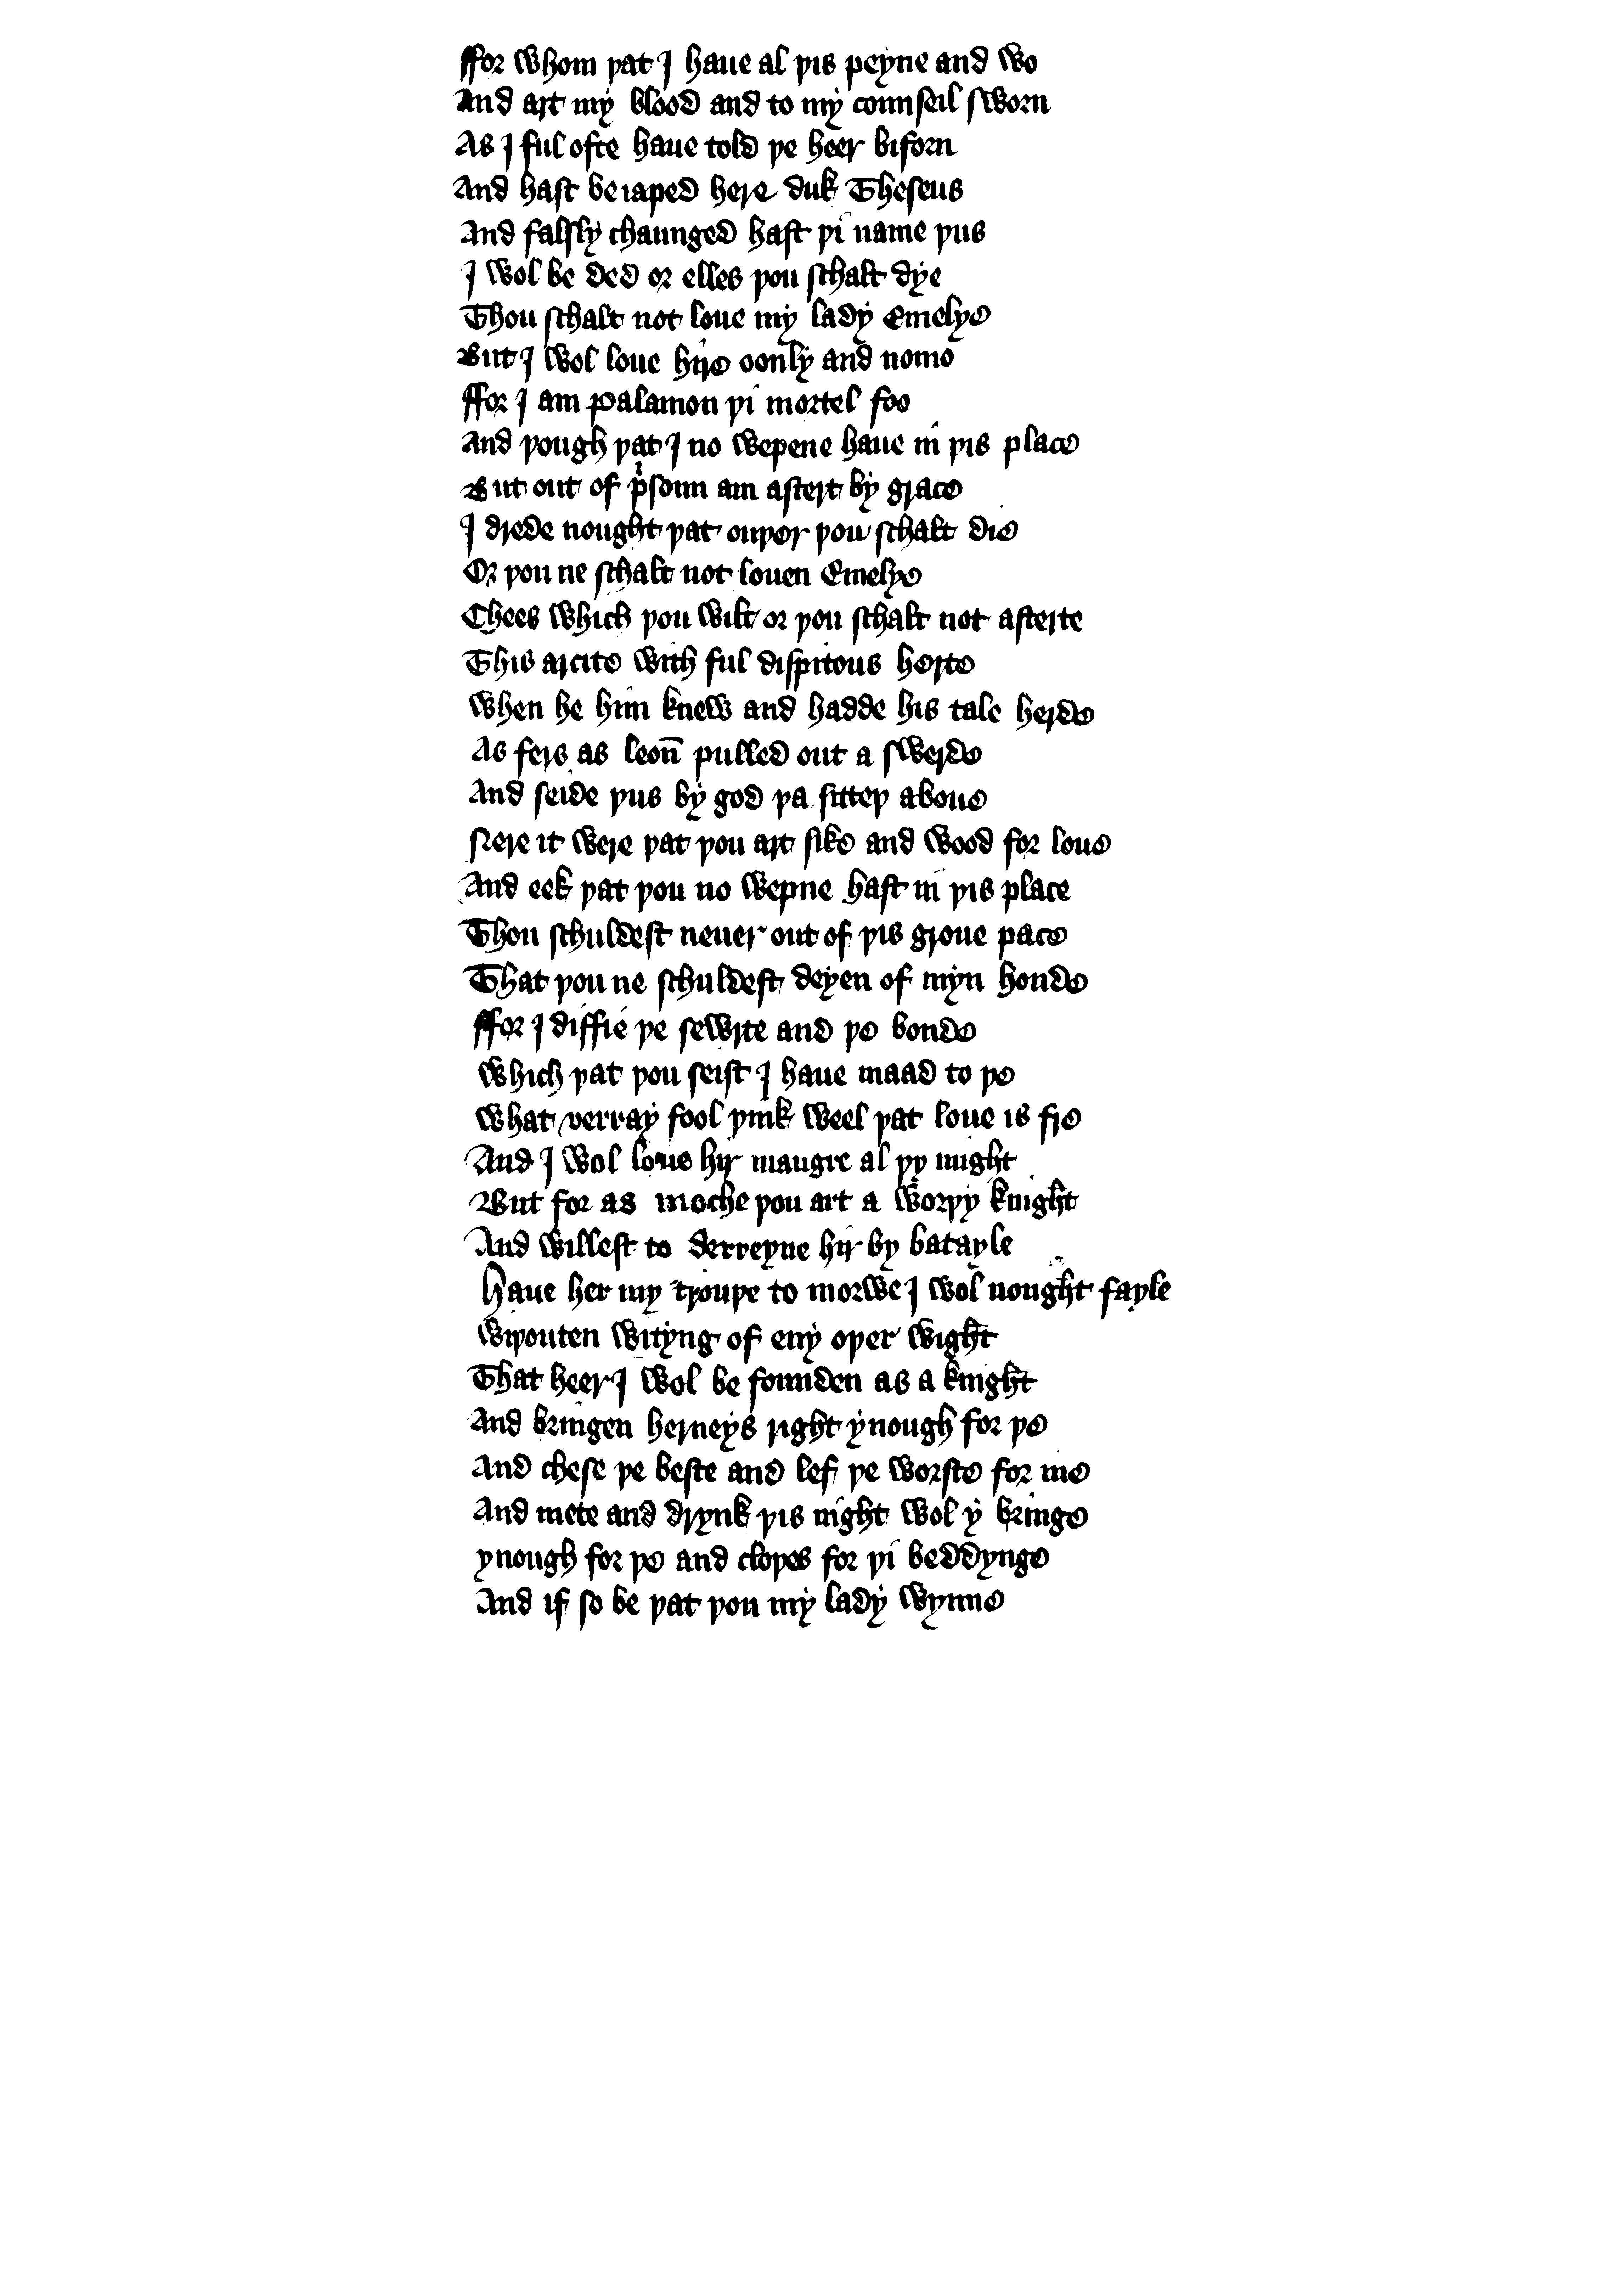 ffor whom þat I haue al þis peyne and wo
And art my blood and to my counseil sworn
As I ful ofte haue told þe heer biforn
And hast beiaped here duk Theseus
And falsly chaunged hast þi name þus
I wol be ded or elles þou schalt dye
Thou schalt not loue my lady Emelye
But I wol loue hire oonly and nomo
ffor I am Palamon þi mortel foo
And þough þat I no wepene haue in þis place
But out of pͥsoun am astert by grace
I drede nought þat ouþer þou schalt die
Or þou ne schalt not louen Emelye
Chees which þou wilt or þou schalt not asterte
This arcite with ful dispitous herte
When he him knew and hadde his tale herde
As fers as leon̄ pulled out a swerde
And seide þus by god þa sitteþ aboue
Nere it were þat þou art sike and wood for loue
And eek þat þou no wepne hast in þis place
Thou schuldest neuer out of þis groue pace
That þou ne schuldest deyen of myn honde
ffor I diffie þe sewrte and þe bonde
Which þat þou seist I haue maad to þe
What verray fool þink weel þat loue is fre
And I wol loue hir maugre al þy might
But for as moche þou art a worþy knight
And willest to derreyne hir by batayle
Haue her my trouþe to morwe I wol nought fayle
Wiþouten wityng of eny oþer wight
That heer I wol be founden as a knight
And bringen herneys right ynough for þe
And chese þe beste and lef þe worste for me
And mete and drynk þis night wol y bringe
ynough for þe and cloþes for þi beddynge
And if so be þat þou my lady wynne